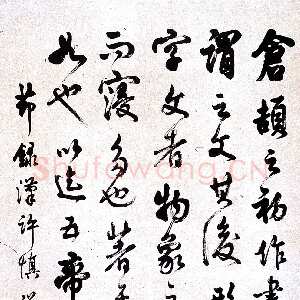 倉頡之初作書
謂之文其後形
字文者物象之
而寖多也著
如也以迄五帝
節錄漢許慎說
Shufawang.CN